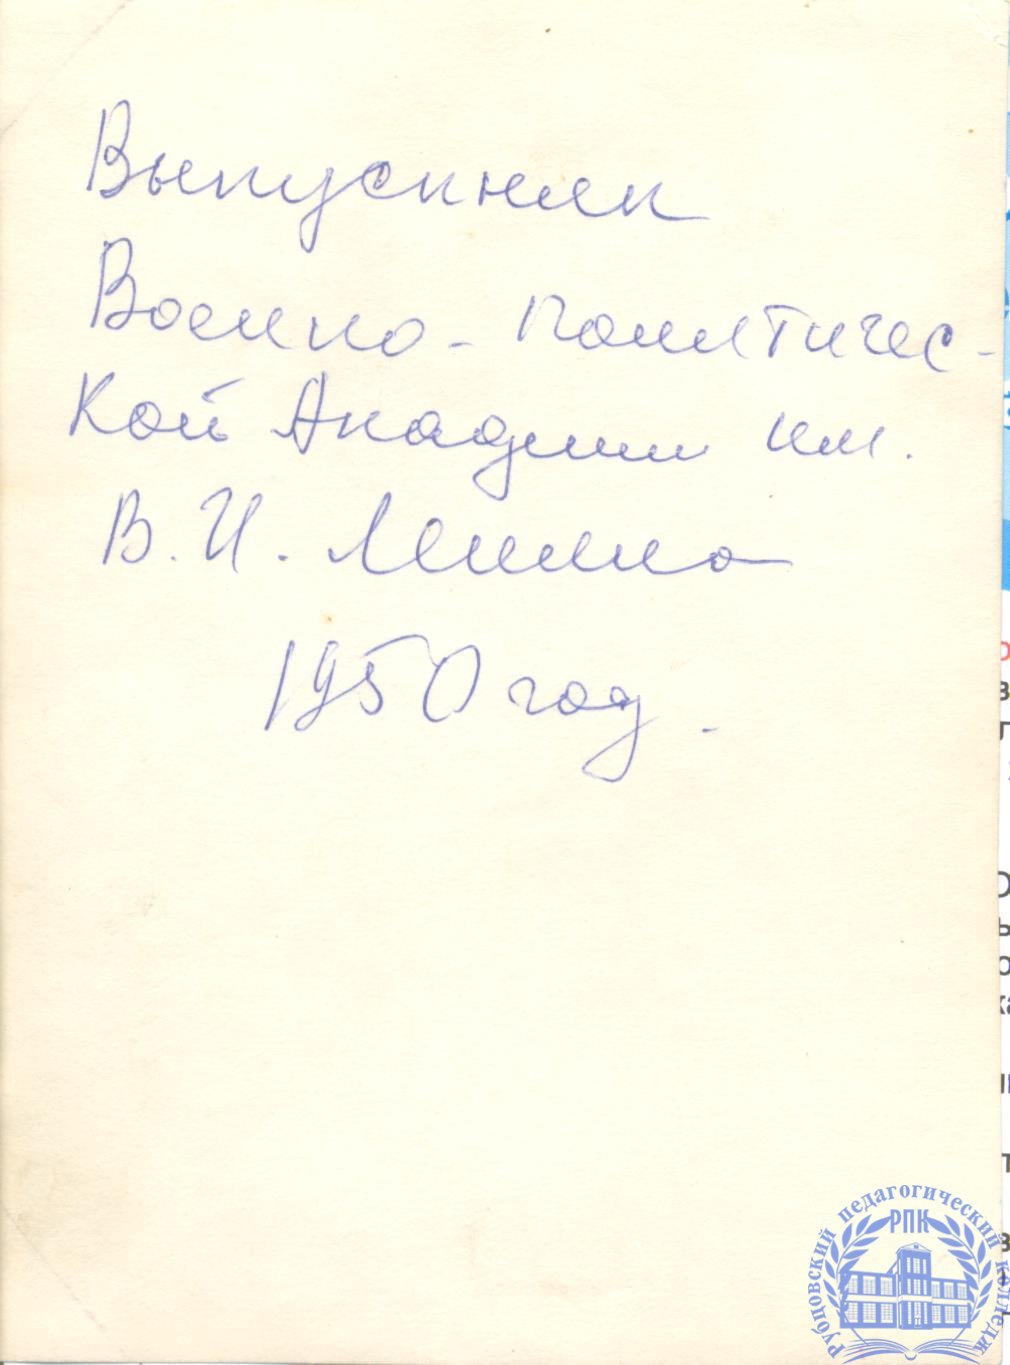 Выпускник
Военно-политичес-
кой Академии им.
В. И. Ленина
1950 год.
Рубцовский педагогический колледж
РПК